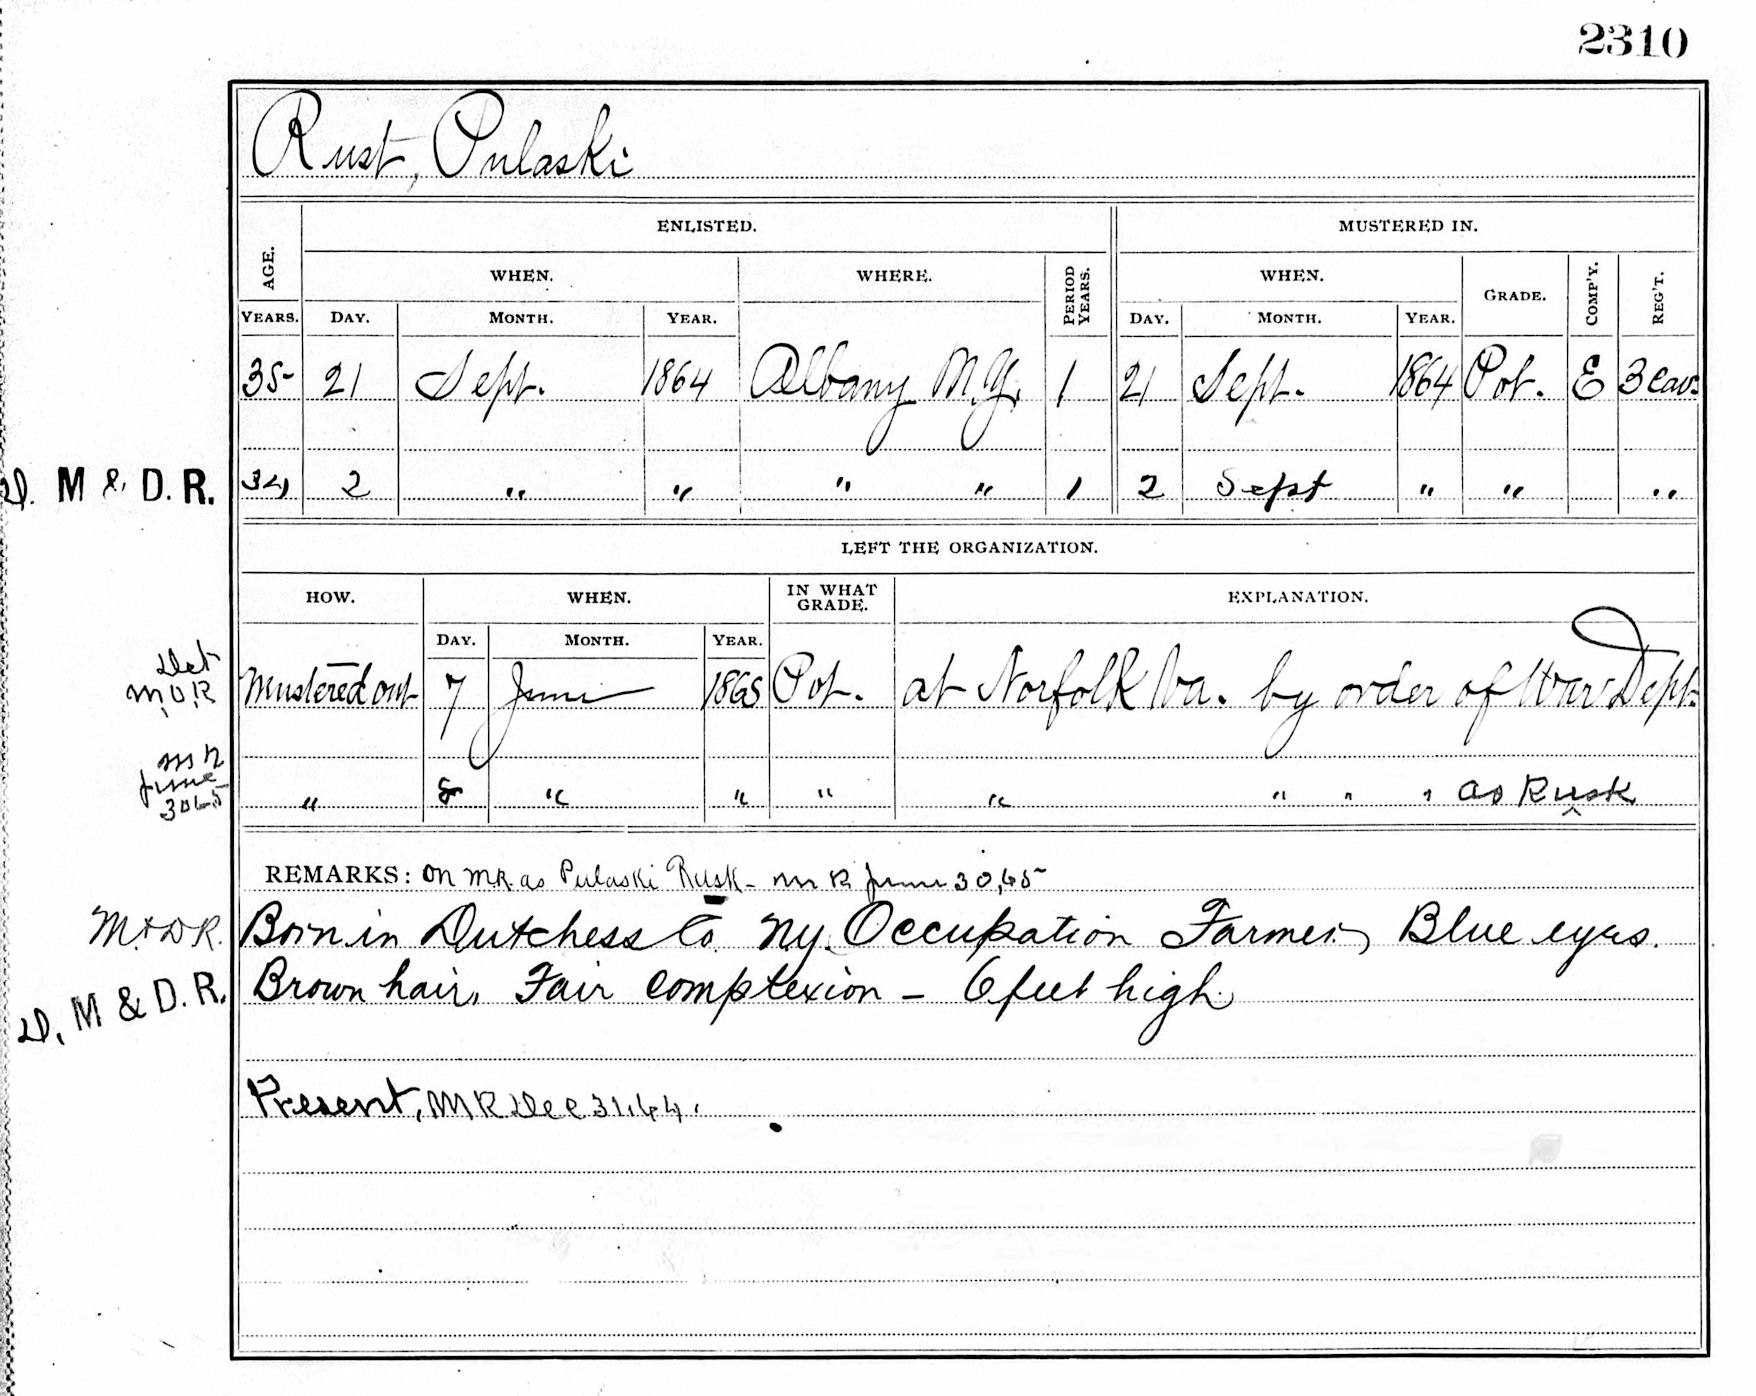 2310
Rust, Pulaski
ENLISTED. MUSTERED IN.
AGE. WHEN. WHERE. PERIOD YEARS. WHEN. GRADE. COMP'Y. REG'T.
YEARS. DAY. MONTH. YEAR. DAY. MONTH. YEAR.
35 21 Sept. 1864 Albany N.Y. 1 21 Sept. 1864 Pvt. E 3 Cav.
D. M & D. R. 34 2 " " " " 1 2 Sept " " "
LEFT THE ORGANIZATION.
HOW. WHEN. IN WHAT GRADE. EXPLANATION.
DAY. MONTH. YEAR.
Det
M.O.R Mustered out 7 June 1865 Pvt. at Norfolk Va. by order of War Dept.
M R
June
30 65 " 8 " " " " " " " as Rusk
REMARKS: On M.R. as Pulaski Rusk - M R June 30, 65
M. & D R. Born in Dutchess Co NY. Occupation Farmer, Blue eyes.
D. M & D. R. Brown hair, Fair complexion - 6 feet high
Present, M R Dec 31, 64.